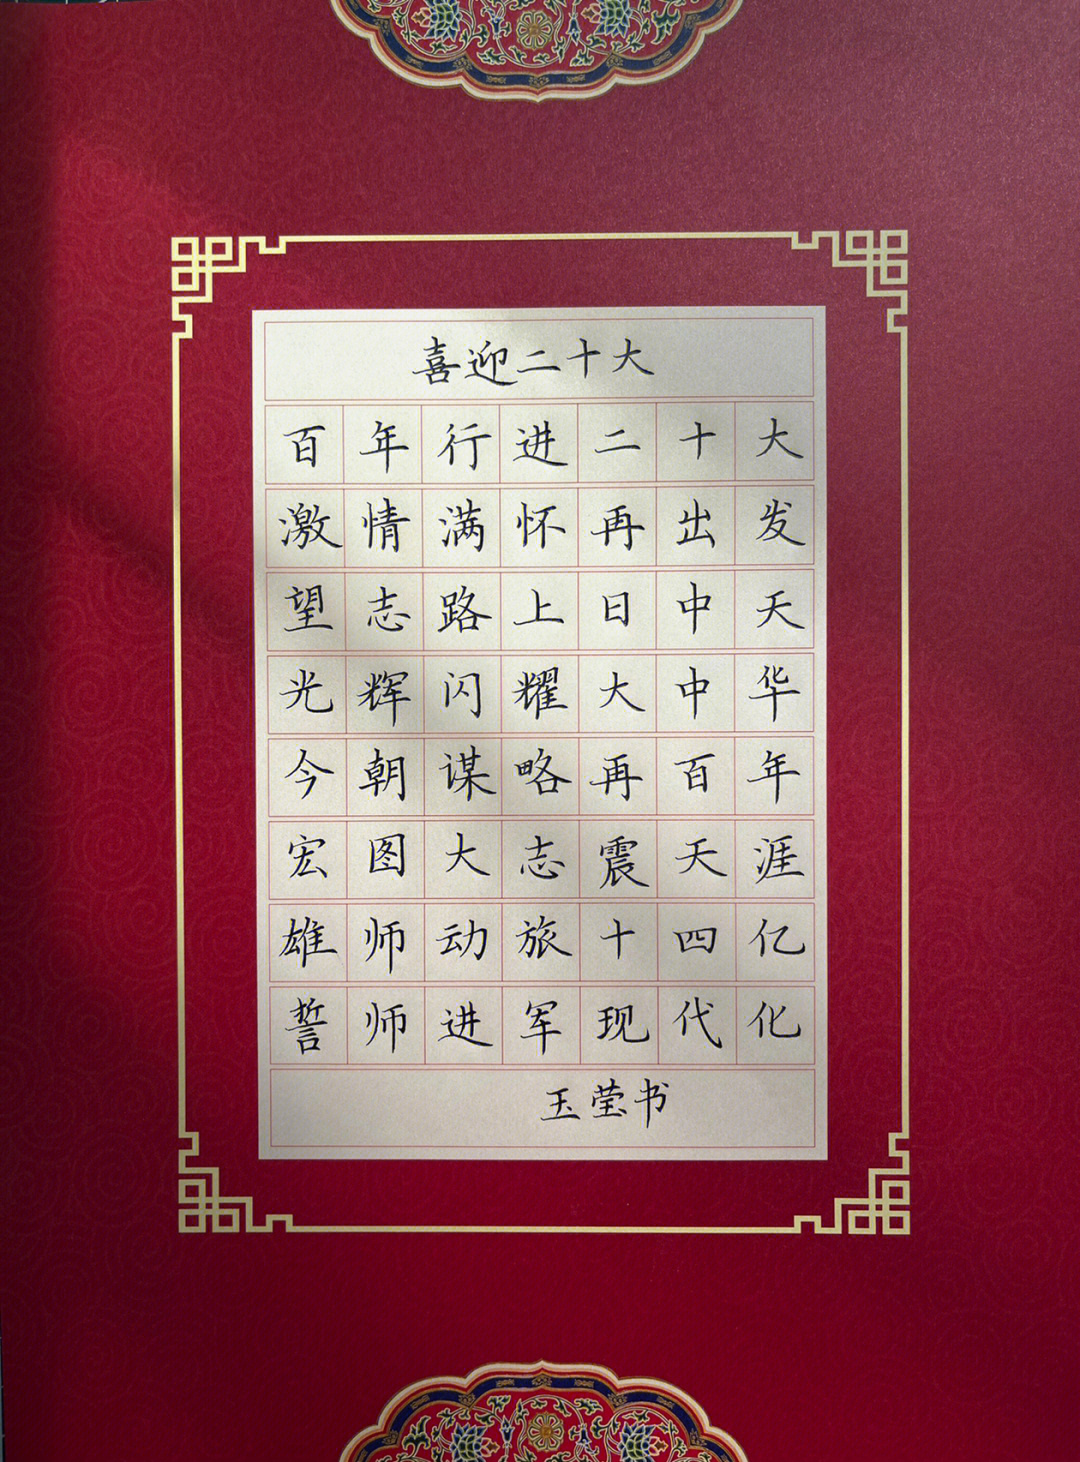 喜迎二十大
百年行进二十大
激情满怀再出发
望志路上日中天
光辉闪耀大中华
今朝谋略再百年
宏图大志震天涯
雄师动旅十四亿
誓师进军现代化
玉莹书